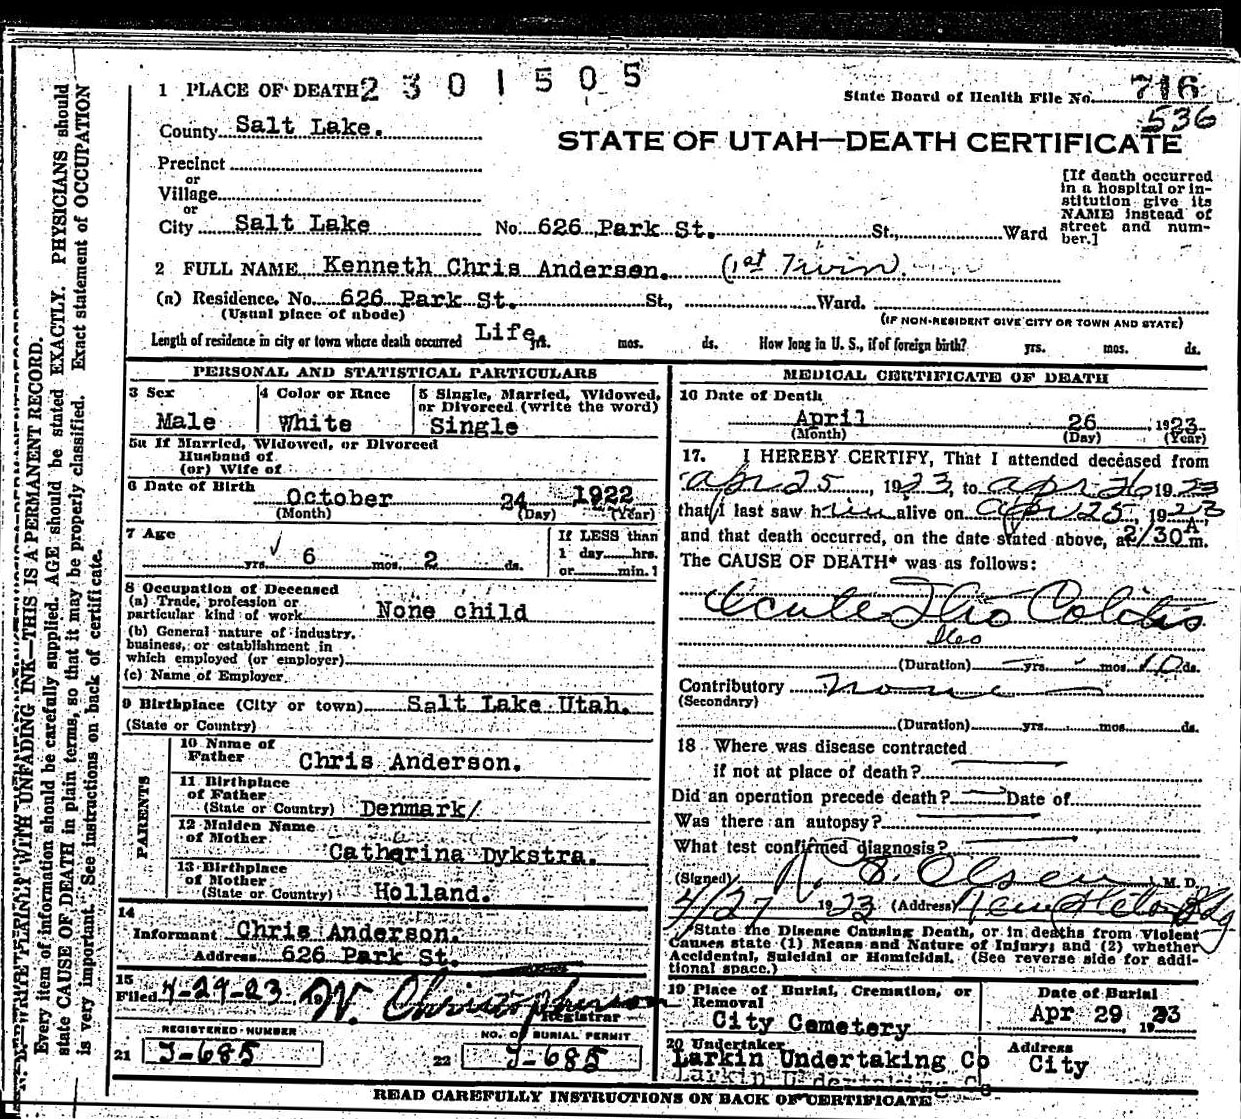 1 PLACE OF DEATH 2301505
State Board of Health File No. 716
536
County Salt Lake.
STATE OF UTAH—DEATH CERTIFICATE
Precinct
or
Village
or
City Salt Lake No. 626 Park St. St., Ward
[If death occurred
in a hospital or in-
stitution give its
NAME instead of
street and num-
ber.]
2 FULL NAME Kenneth Chris Anderson. (1st Twin).
(a) Residence. No. 626 Park St. St., Ward.
(Usual place of abode) (IF NON-RESIDENT GIVE CITY OR TOWN AND STATE)
Length of residence in city or town where death occurred Life yrs. mos. ds. How long in U. S., if of foreign birth? yrs. mos. ds.
PERSONAL AND STATISTICAL PARTICULARS
3 Sex
Male
4 Color or Race
White
5 Single, Married, Widowed,
or Divorced (write the word)
Single
5a If Married, Widowed, or Divorced
Husband of
(or) Wife of
6 Date of Birth October 24 1922
(Month) (Day) (Year)
7 Age
yrs. 6 mos. 2 ds.
If LESS than
1 day hrs.
or min. ?
8 Occupation of Deceased
(a) Trade, profession or
particular kind of work None child
(b) General nature of industry,
business, or establishment in
which employed (or employer)
(c) Name of Employer
9 Birthplace (City or town) Salt Lake Utah.
(State or Country)
PARENTS
10 Name of
Father Chris Anderson.
11 Birthplace
of Father
(State or Country) Denmark/
12 Maiden Name
of Mother
Catherina Dykstra.
13 Birthplace
of Mother
(State or Country) Holland.
14
Informant Chris Anderson.
Address 626 Park St.
15
Filed 4-29-23 19 W. Christopherson
Registrar
REGISTERED NUMBER
21 J-685
NO. OF BURIAL PERMIT
22 J-685
MEDICAL CERTIFICATE OF DEATH
16 Date of Death
April 26, 1923
(Month) (Day) (Year)
17. I HEREBY CERTIFY, That I attended deceased from
Apr 25, 1923, to Apr 26 1923
that I last saw him alive on Apr 25, 1923
and that death occurred, on the date stated above, at 2/30 A m.
The CAUSE OF DEATH* was as follows:
Acute Ilio Colitis
Ileo
(Duration) yrs. mos. 10 ds.
Contributory none
(Secondary)
(Duration) yrs. mos. ds.
18 Where was disease contracted
if not at place of death?
Did an operation precede death? Date of
Was there an autopsy?
What test confirmed diagnosis?
(Signed) Olsen M. D.
4/27 1923 (Address)
*State the Disease Causing Death, or in deaths from Violent
Causes state (1) Means and Nature of Injury; and (2) whether
Accidental, Suicidal or Homicidal. (See reverse side for addi-
tional space.)
19 Place of Burial, Cremation, or
Removal
City Cemetery
Date of Burial
Apr 29 1923
20 Undertaker
Larkin Undertaking Co
Larkin Undertaking Co
Address
City
READ CAREFULLY INSTRUCTIONS ON BACK OF CERTIFICATE
WRITE PLAINLY WITH UNFADING INK—THIS IS A PERMANENT RECORD.
Every item of information should be carefully supplied. AGE should be stated EXACTLY. PHYSICIANS should
state CAUSE OF DEATH in plain terms, so that it may be properly classified. Exact statement of OCCUPATION
is very important. See instructions on back of certificate.